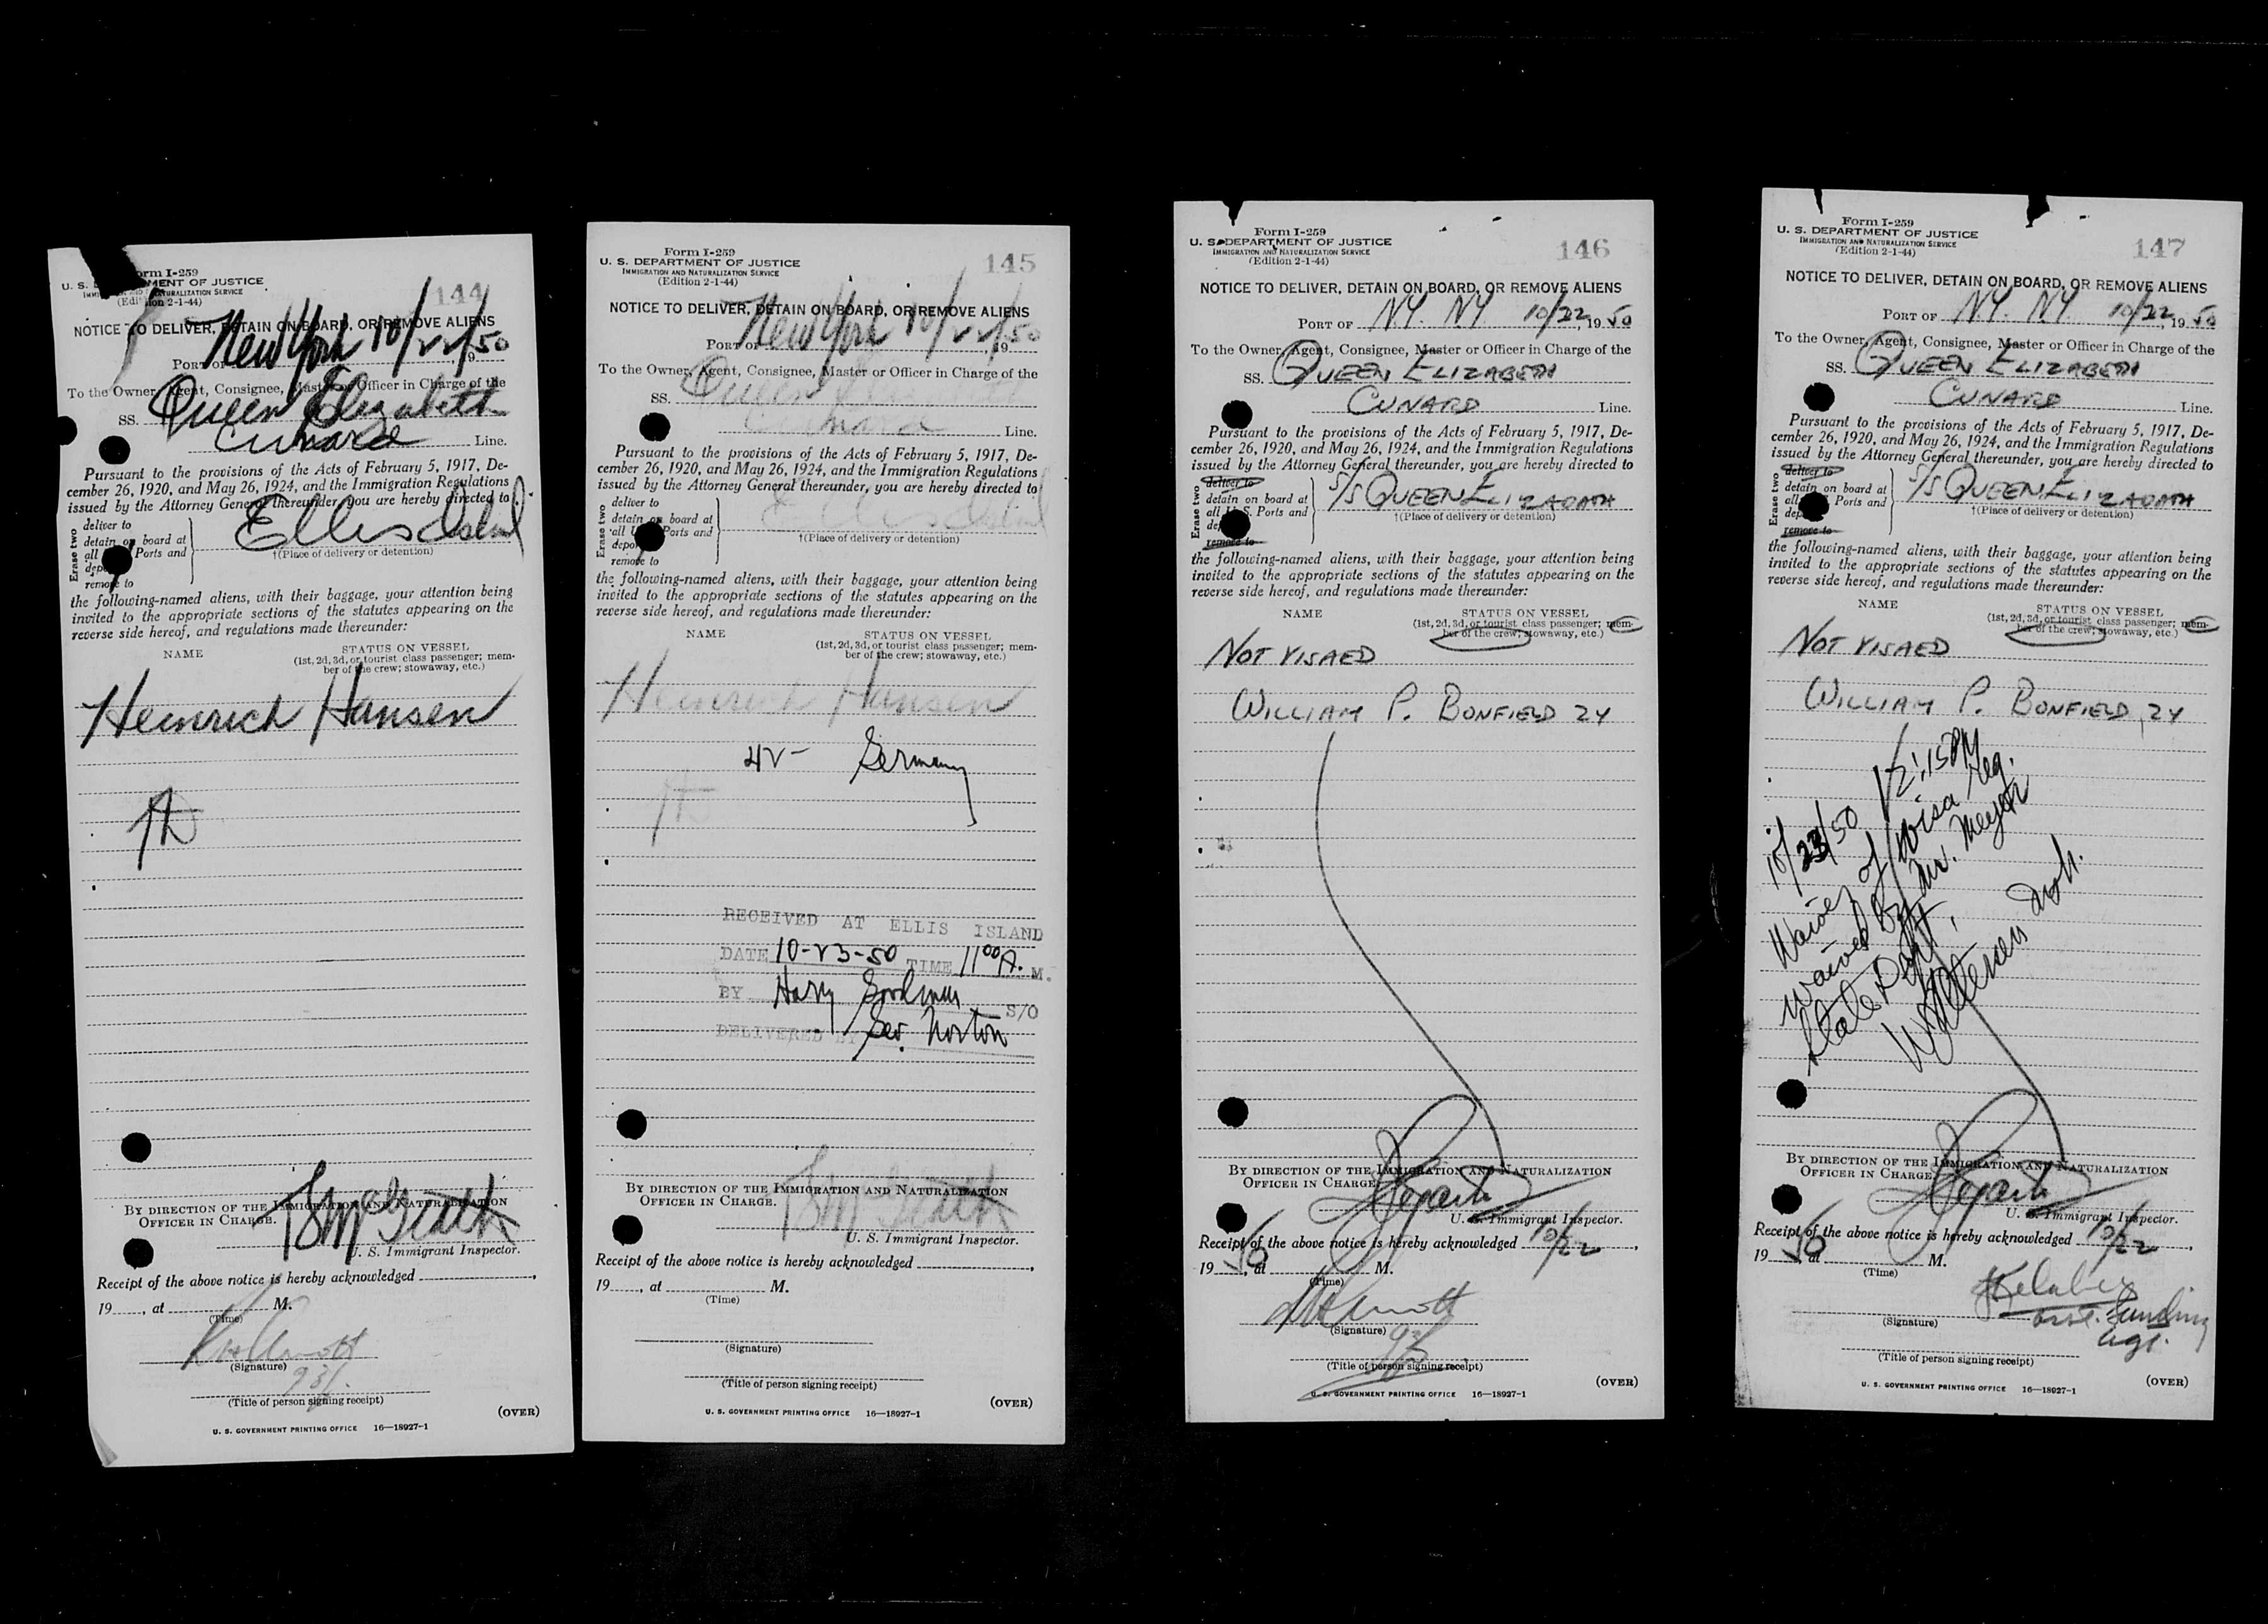 Form I-259
U. S. DEPARTMENT OF JUSTICE
IMMIGRATION AND NATURALIZATION SERVICE
(Edition 2-1-44)
144
NOTICE TO DELIVER, DETAIN ON BOARD, OR REMOVE ALIENS
PORT OF New York 10/22/50 19
To the Owner, Agent, Consignee, Master or Officer in Charge of the
SS. Queen Elizabeth
Cunard Line.
Pursuant to the provisions of the Acts of February 5, 1917, De-
cember 26, 1920, and May 26, 1924, and the Immigration Regulations
issued by the Attorney General thereunder, you are hereby directed to
Erase two
deliver to
detain on board at
all Ports and
remove to
Ellis Island
†(Place of delivery or detention)
the following-named aliens, with their baggage, your attention being
invited to the appropriate sections of the statutes appearing on the
reverse side hereof, and regulations made thereunder:
NAME STATUS ON VESSEL
(1st, 2d, 3d, or tourist class passenger; mem-
ber of the crew; stowaway, etc.)
Heinrich Hansen
BY DIRECTION OF THE IMMIGRATION AND NATURALIZATION
OFFICER IN CHARGE.
U. S. Immigrant Inspector.
Receipt of the above notice is hereby acknowledged
19 , at M.
(Time)
(Signature)
(Title of person signing receipt)
(OVER)
U. S. GOVERNMENT PRINTING OFFICE 16—18927-1
Form I-259
U. S. DEPARTMENT OF JUSTICE
IMMIGRATION AND NATURALIZATION SERVICE
(Edition 2-1-44)
145
NOTICE TO DELIVER, DETAIN ON BOARD, OR REMOVE ALIENS
PORT OF New York 10/22/50 19
To the Owner, Agent, Consignee, Master or Officer in Charge of the
SS. Queen Elizabeth
Cunard Line.
Pursuant to the provisions of the Acts of February 5, 1917, De-
cember 26, 1920, and May 26, 1924, and the Immigration Regulations
issued by the Attorney General thereunder, you are hereby directed to
Erase two
deliver to
detain on board at
all Ports and
remove to
Ellis Island
†(Place of delivery or detention)
the following-named aliens, with their baggage, your attention being
invited to the appropriate sections of the statutes appearing on the
reverse side hereof, and regulations made thereunder:
NAME STATUS ON VESSEL
(1st, 2d, 3d, or tourist class passenger; mem-
ber of the crew; stowaway, etc.)
Heinrich Hansen
42 - Germany
RECEIVED AT ELLIS ISLAND
DATE 10-23-50 TIME 11 00 A. M.
BY Harry Goodman S/O
DELIVERED BY Geo. Norton
BY DIRECTION OF THE IMMIGRATION AND NATURALIZATION
OFFICER IN CHARGE.
U. S. Immigrant Inspector.
Receipt of the above notice is hereby acknowledged
19 , at M.
(Time)
(Signature)
(Title of person signing receipt)
(OVER)
U. S. GOVERNMENT PRINTING OFFICE 16—18927-1
Form I-259
U. S. DEPARTMENT OF JUSTICE
IMMIGRATION AND NATURALIZATION SERVICE
(Edition 2-1-44)
146
NOTICE TO DELIVER, DETAIN ON BOARD, OR REMOVE ALIENS
PORT OF NY. NY 10/22, 19 50
To the Owner, Agent, Consignee, Master or Officer in Charge of the
SS. QUEEN ELIZABETH
CUNARD Line.
Pursuant to the provisions of the Acts of February 5, 1917, De-
cember 26, 1920, and May 26, 1924, and the Immigration Regulations
issued by the Attorney General thereunder, you are hereby directed to
Erase two
deliver to
detain on board at
all U. S. Ports and
remove to
S/S QUEEN ELIZABETH
†(Place of delivery or detention)
the following-named aliens, with their baggage, your attention being
invited to the appropriate sections of the statutes appearing on the
reverse side hereof, and regulations made thereunder:
NAME STATUS ON VESSEL
(1st, 2d, 3d, or tourist class passenger; mem-
ber of the crew; stowaway, etc.)
NOT VISAED
WILLIAM P. BONFIELD 24
BY DIRECTION OF THE IMMIGRATION AND NATURALIZATION
OFFICER IN CHARGE.
U. S. Immigrant Inspector.
Receipt of the above notice is hereby acknowledged 10/22,
19 50, at M.
(Time)
(Signature)
(Title of person signing receipt)
(OVER)
U. S. GOVERNMENT PRINTING OFFICE 16—18927-1
Form I-259
U. S. DEPARTMENT OF JUSTICE
IMMIGRATION AND NATURALIZATION SERVICE
(Edition 2-1-44)
147
NOTICE TO DELIVER, DETAIN ON BOARD, OR REMOVE ALIENS
PORT OF NY. NY 10/22, 19 50
To the Owner, Agent, Consignee, Master or Officer in Charge of the
SS. QUEEN ELIZABETH
CUNARD Line.
Pursuant to the provisions of the Acts of February 5, 1917, De-
cember 26, 1920, and May 26, 1924, and the Immigration Regulations
issued by the Attorney General thereunder, you are hereby directed to
Erase two
deliver to
detain on board at
Ports and
remove to
S/S QUEEN ELIZABETH
†(Place of delivery or detention)
the following-named aliens, with their baggage, your attention being
invited to the appropriate sections of the statutes appearing on the
reverse side hereof, and regulations made thereunder:
NAME STATUS ON VESSEL
(1st, 2d, 3d, or tourist class passenger; mem-
ber of the crew; stowaway, etc.)
NOT VISAED
WILLIAM P. BONFIELD, 24
10/23/50 12:15 PM
Waiver of Visa Req.
waived by Mr.
State Dept.
BY DIRECTION OF THE IMMIGRATION AND NATURALIZATION
OFFICER IN CHARGE.
U. S. Immigrant Inspector.
Receipt of the above notice is hereby acknowledged 10/22,
19 50, at M.
(Time)
(Signature)
agt.
(Title of person signing receipt)
(OVER)
U. S. GOVERNMENT PRINTING OFFICE 16—18927-1